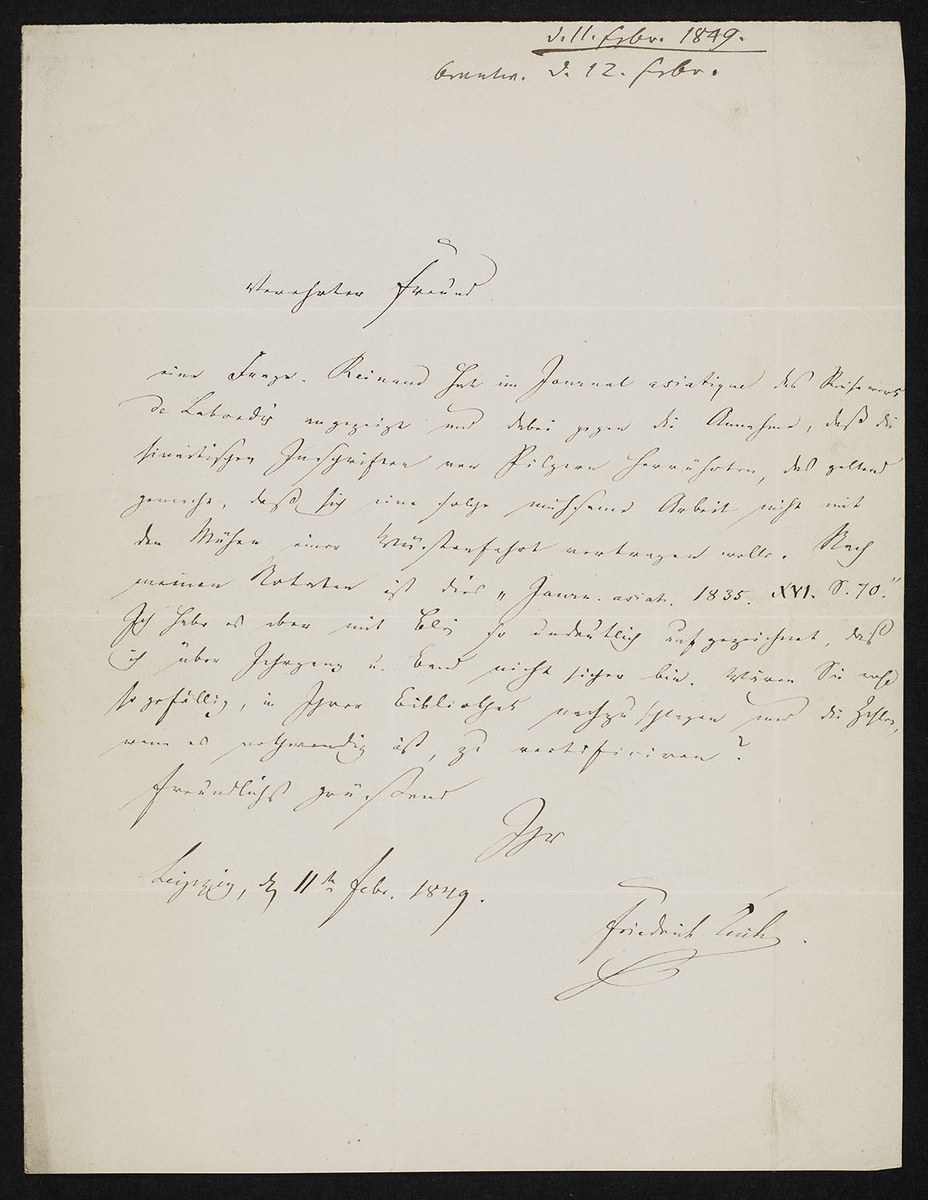 d. 11. Febr. 1849.
beantw. d. 12. Febr.
Verehrter Freund
eine Frage. Reinaud hat im Journal asiatique das Reisewerk
de Laborde's angezeigt und dabei gegen die Annahme, daß die
sinaitischen Inschriften von Pilgern herrührten, das geltend
gemacht, daß sich eine solche mühsame Arbeit nicht mit
den Mühen einer Wüstenfahrt vertragen wolle. Nach
meinen Notaten ist dies „Journ. asiat. 1835. XVI. S. 70."
Ich habe es aber mit Blei so undeutlich aufgezeichnet, daß
ich über Jahrgang u. Band nicht sicher bin. Wären Sie wohl
so gefällig, in Ihrer Bibliothek nachzuschlagen und die Zahlen,
wenn es nothwendig ist, zu rectificiren?
Freundlichst grüßend
Ihr
Leipzig, d. 11ten Febr. 1849.
Friedrich Tuch.